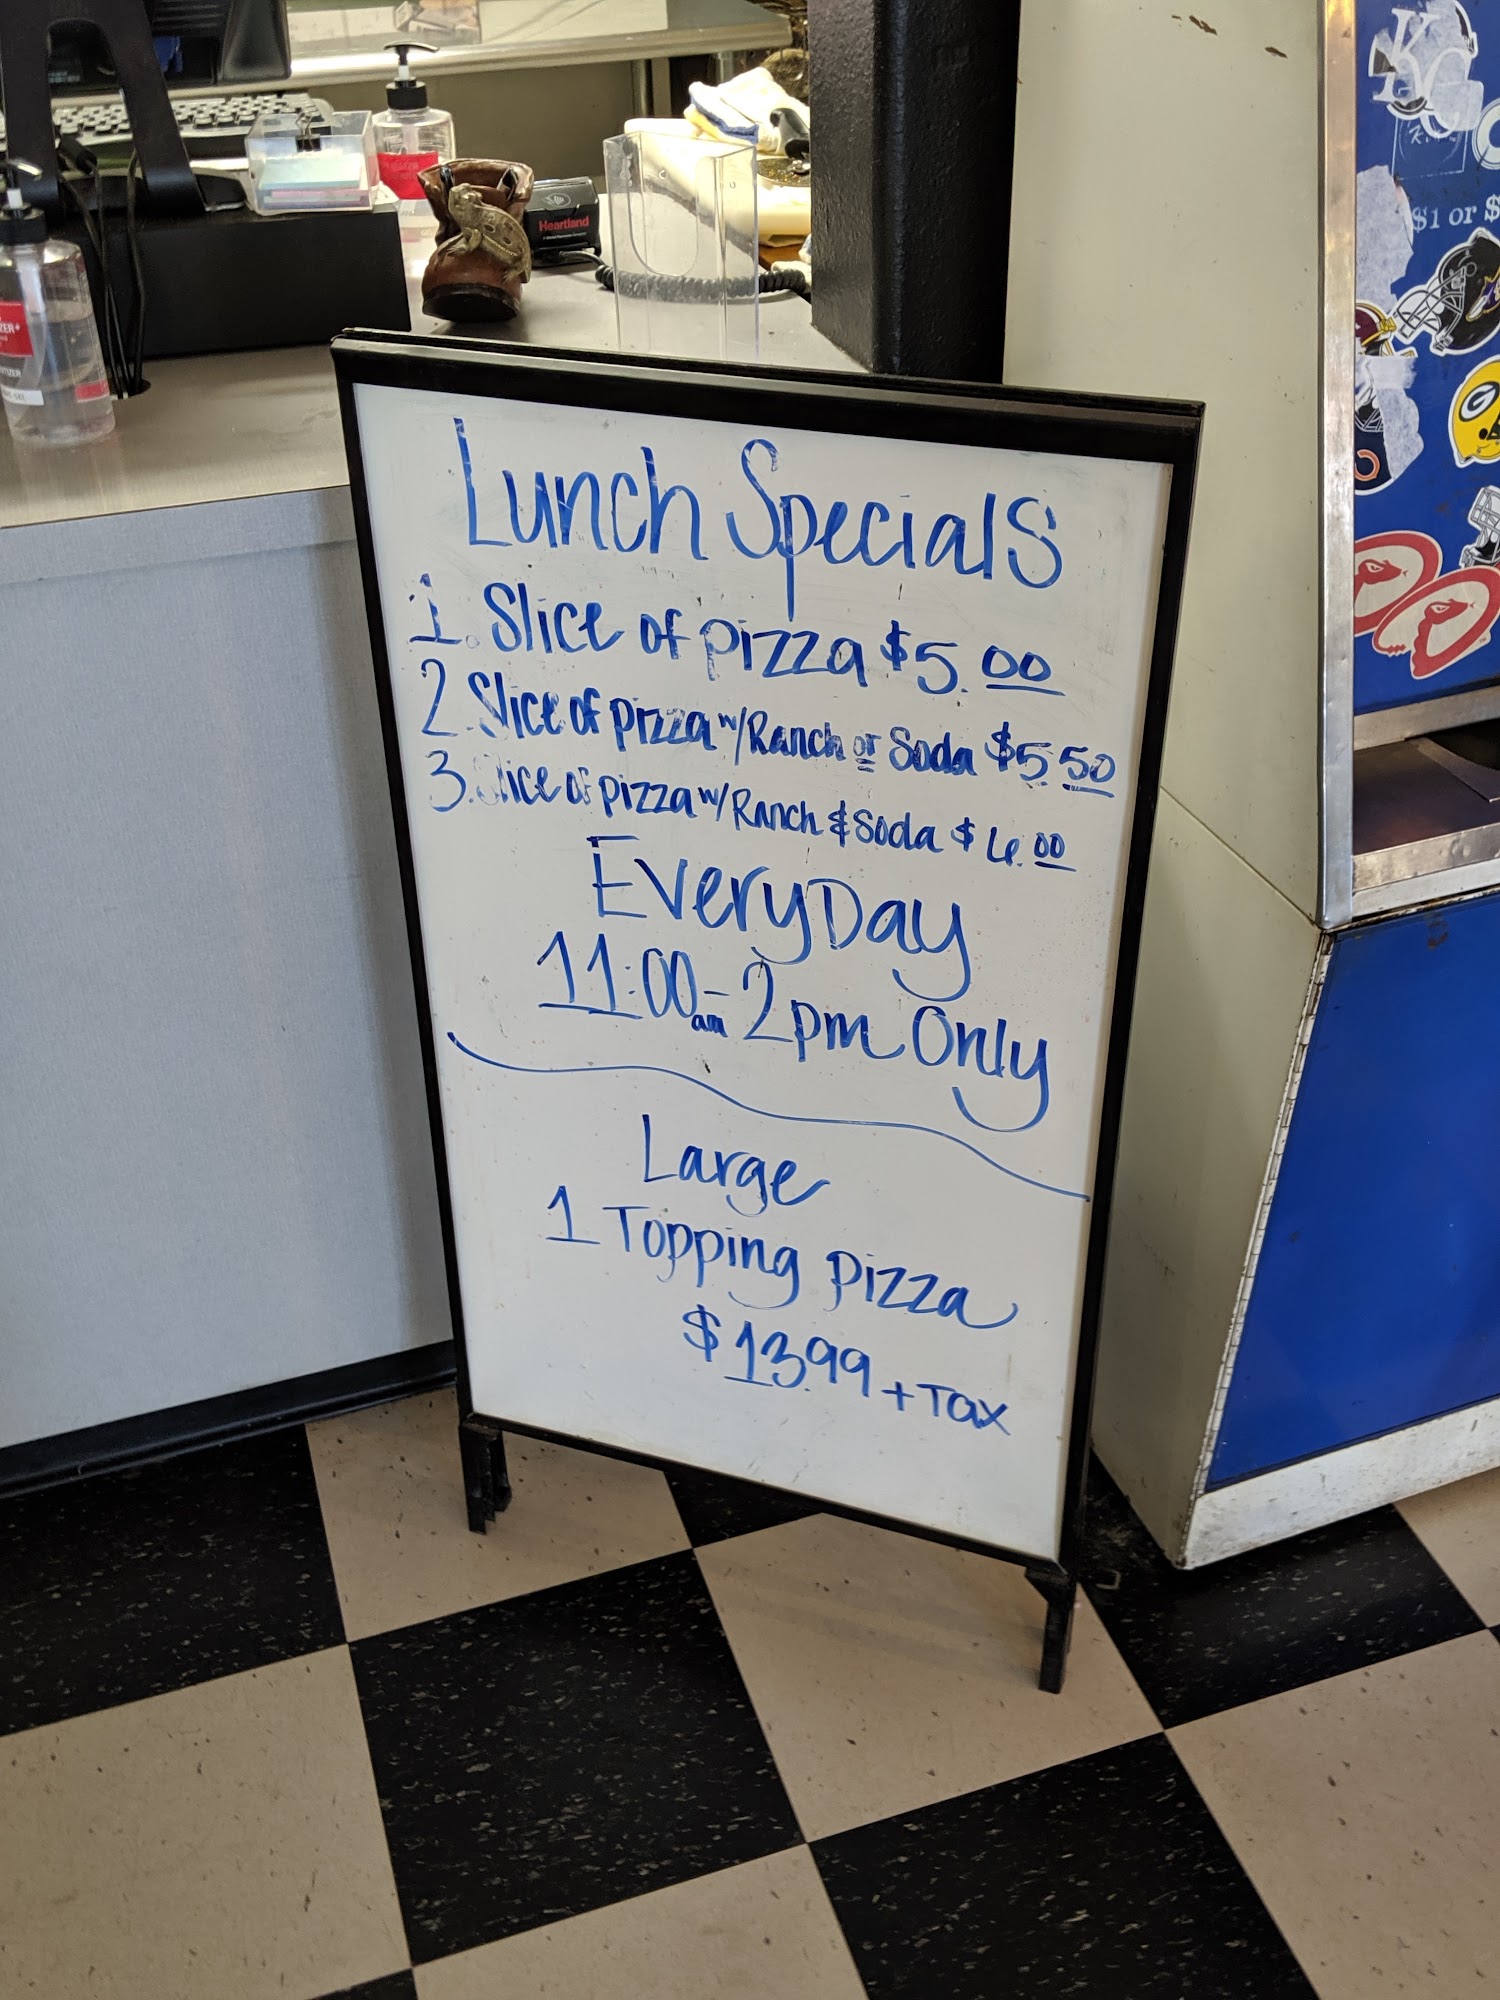 Heartland
$1 or $
KC
G
Lunch Specials
1. Slice of pizza $5.00
2. Slice of pizza w/Ranch or Soda $5.50
3. Slice of pizza w/Ranch & Soda $6.00
EveryDay
11:00am - 2pm Only
Large
1 Topping pizza
$13.99 + Tax